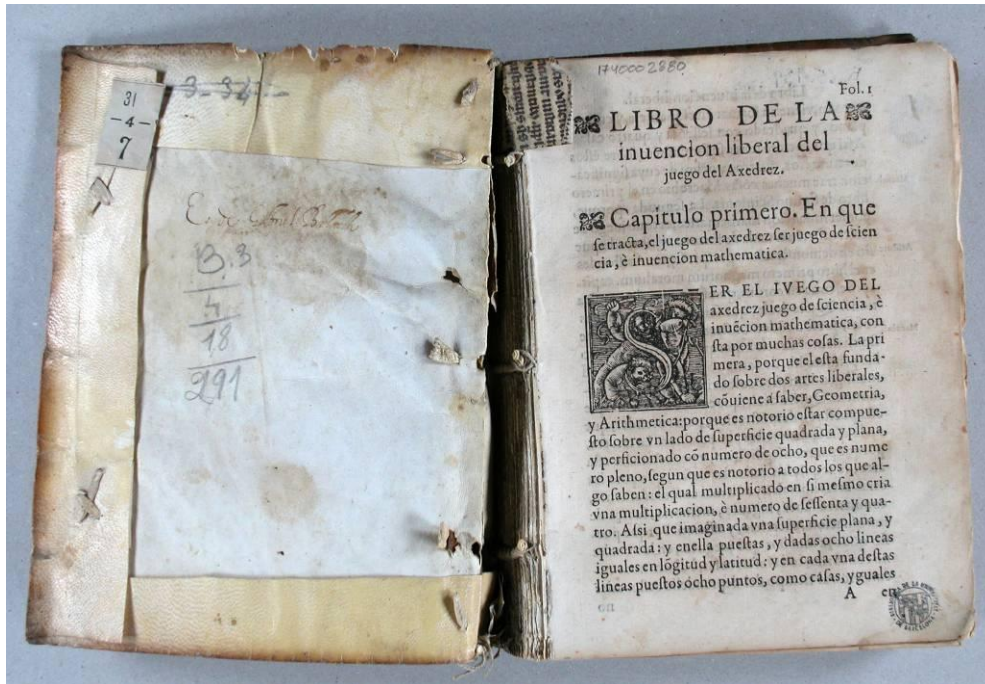 31
-4-
7
3-34
B.3
4
18
291
1740002880
Fol.1
LIBRO DE LA
inuencion liberal del
juego del Axedrez.
Capitulo primero. En que
se tracta, el juego del axedrez ser juego de scien
cia, è inuencion mathematica.
SER EL IVEGO DEL
axedrez juego de sciencia, è
inuẽcion mathematica, con
sta por muchas cosas. La pri
mera, porque el esta funda-
do sobre dos artes liberales,
cõuiene a saber, Geometria,
y Arithmetica: porque es notorio estar compue-
sto sobre vn lado de superficie quadrada y plana,
y perficionado cõ numero de ocho, que es nume
ro pleno, segun que es notorio a todos los que al-
go saben: el qual multiplicado en si mesmo cria
vna multiplicacion, è numero de sessenta y qua-
tro. Assi que imaginada vna superficie plana, y
quadrada: y enella puestas, y dadas ocho lineas
iguales en lõgitud y latitud: y en cada vna destas
lineas puestos ocho puntos, como casas, yguales
A en